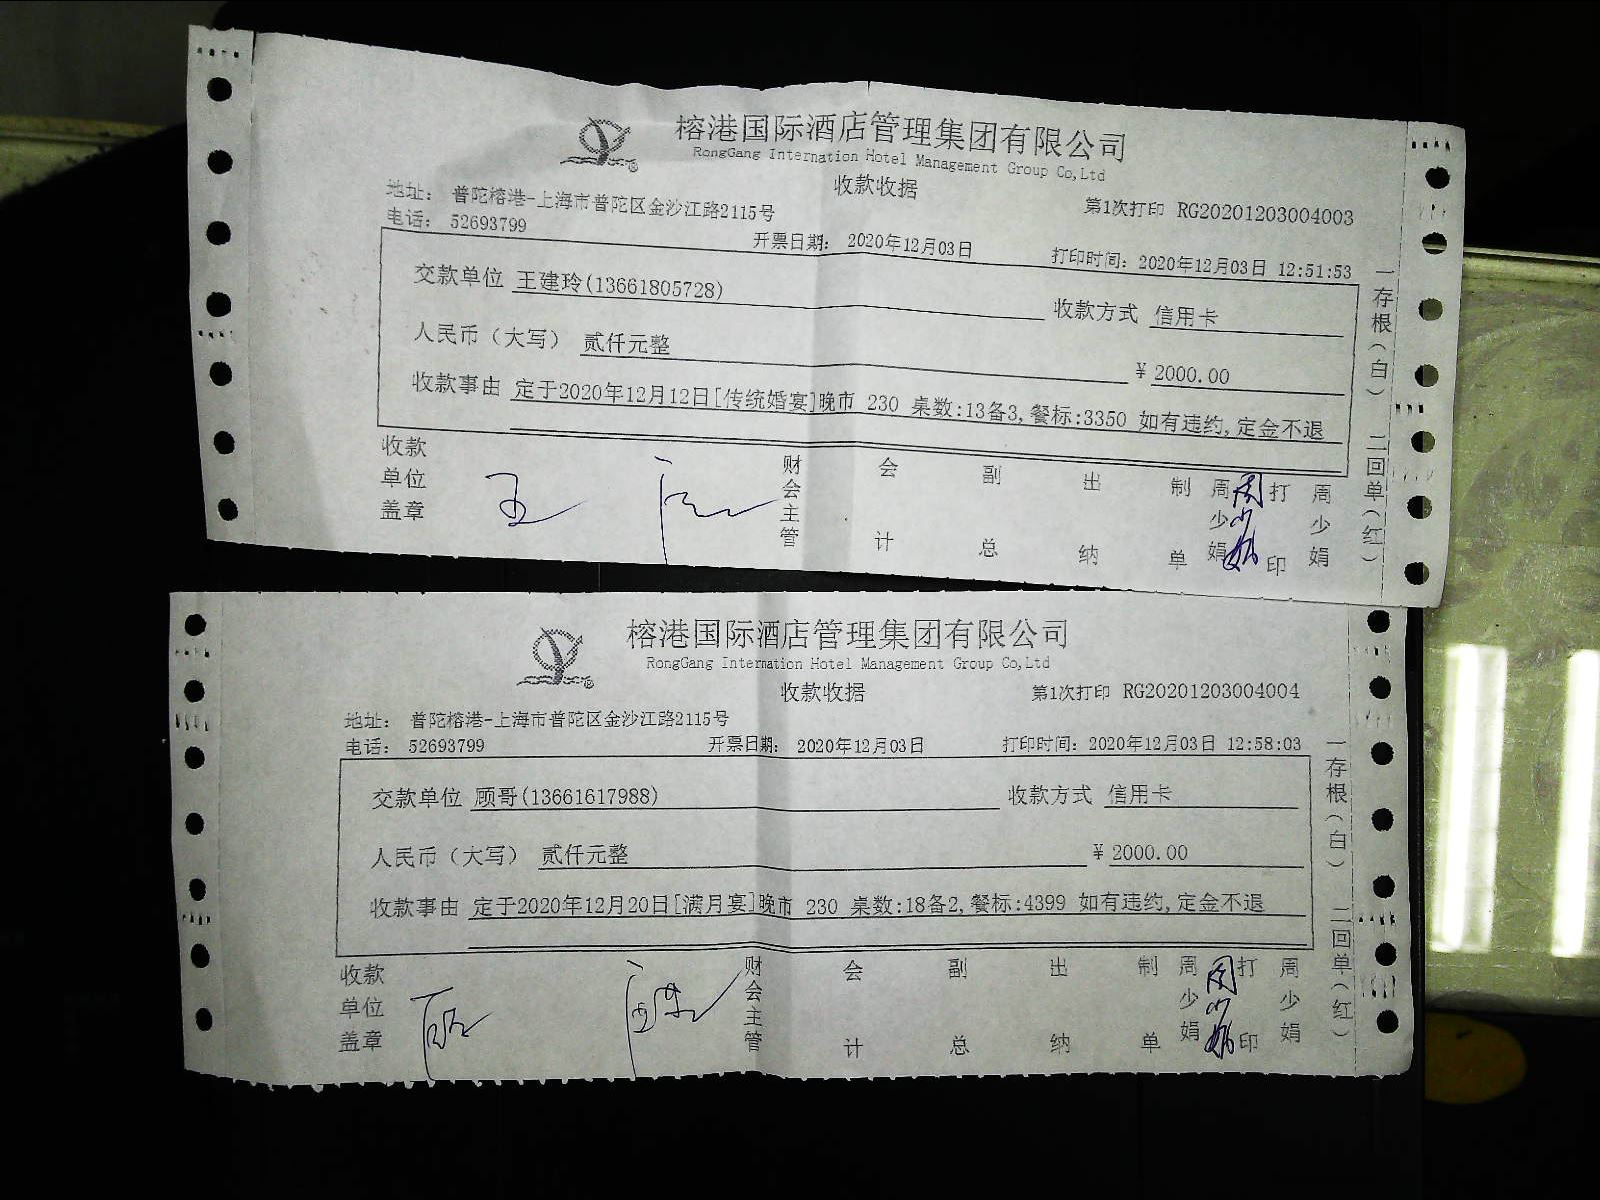 榕港国际酒店管理集团有限公司
RongGang Internation Hotel Management Group Co,Ltd
收款收据
第1次打印 RG20201203004003
地址： 普陀榕港-上海市普陀区金沙江路2115号
电话： 52693799
开票日期： 2020年12月03日
打印时间：2020年12月03日 12:51:53
交款单位 王建玲(13661805728)
收款方式 信用卡
人民币（大写） 贰仟元整
¥ 2000.00
收款事由 定于2020年12月12日[传统婚宴]晚市 230 桌数:13备3,餐标:3350 如有违约,定金不退
收款单位盖章
王
财会主管
会计
副总
出纳
制单
周少娟
周少娟
打印
周少娟
一存根（白） 二回单（红）
榕港国际酒店管理集团有限公司
RongGang Internation Hotel Management Group Co,Ltd
收款收据
第1次打印 RG20201203004004
地址： 普陀榕港-上海市普陀区金沙江路2115号
电话： 52693799
开票日期： 2020年12月03日
打印时间：2020年12月03日 12:58:03
交款单位 顾哥(13661617988)
收款方式 信用卡
人民币（大写） 贰仟元整
¥ 2000.00
收款事由 定于2020年12月20日[满月宴]晚市 230 桌数:18备2,餐标:4399 如有违约,定金不退
收款单位盖章
顾
财会主管
会计
副总
出纳
制单
周少娟
周少娟
打印
周少娟
一存根（白） 二回单（红）